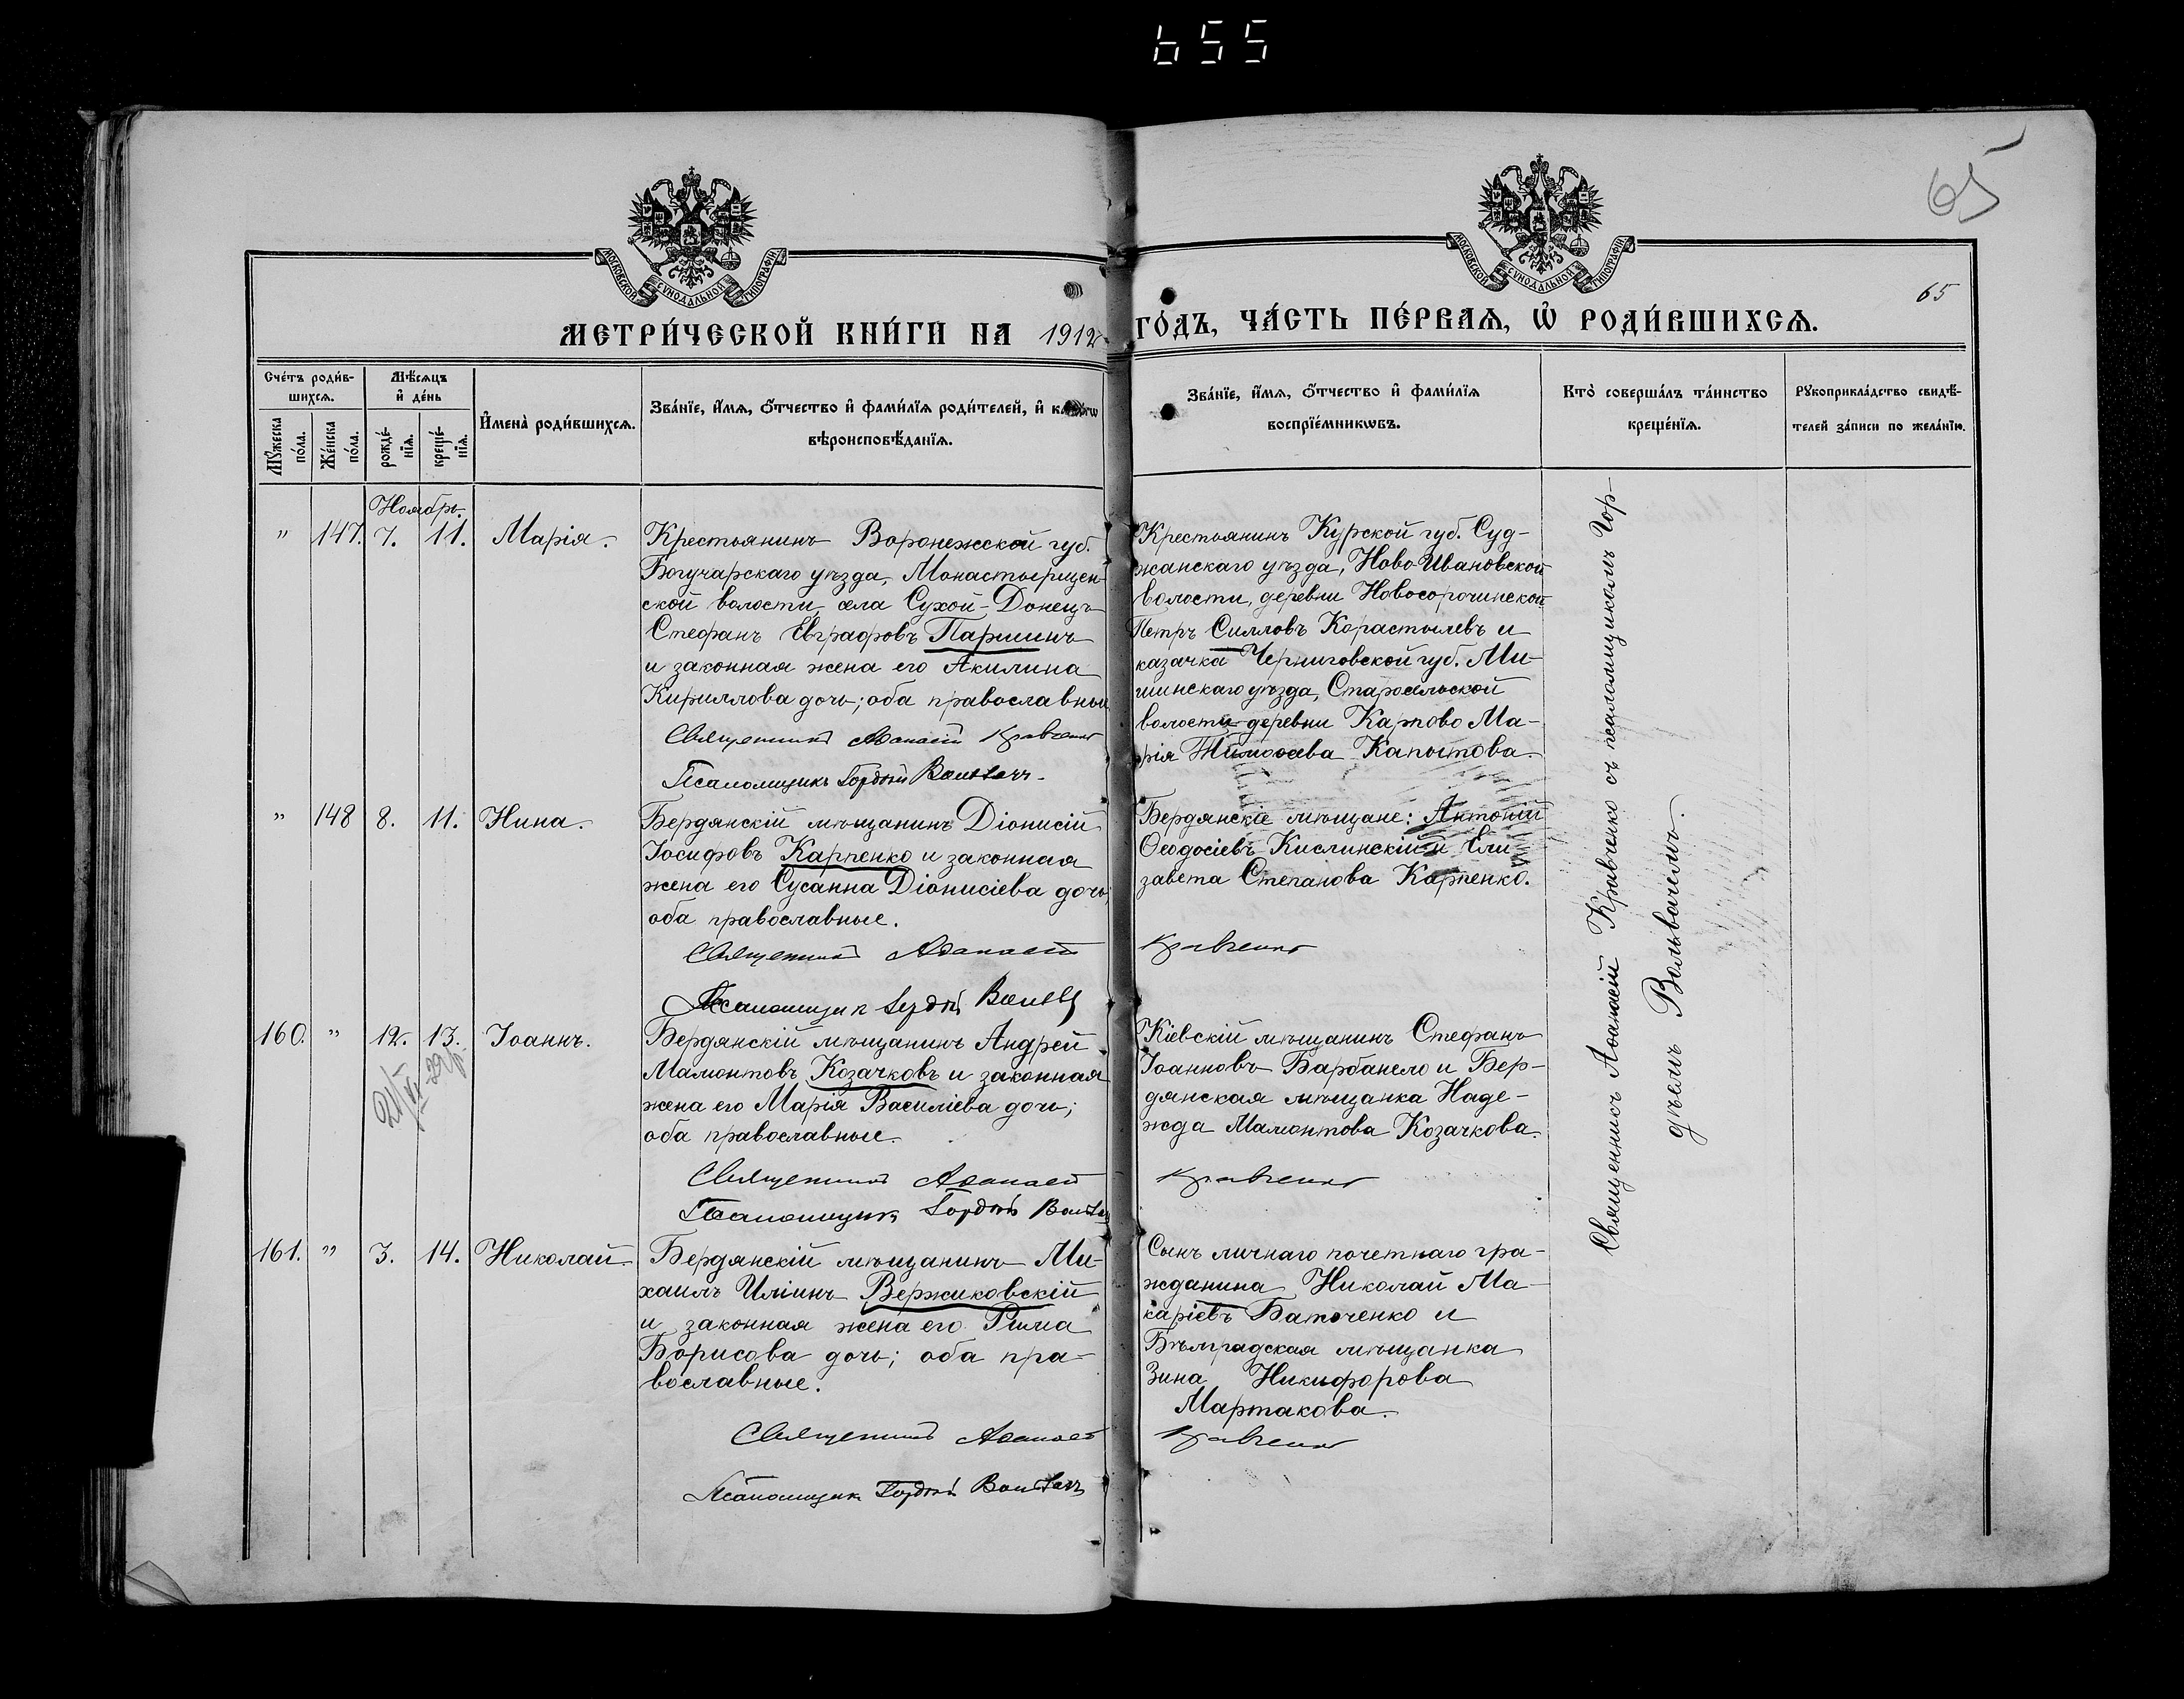 655
65
65
МОСКОВСКОЙ СѴНОДАЛЬНОЙ ТИПОГРАФІИ
МОСКОВСКОЙ СѴНОДАЛЬНОЙ ТИПОГРАФІИ
МЕТРИ́ЧЕСКОЙ КНИ́ГИ НА 1912 ГО́ДЪ, ЧА́СТЬ ПЕ́РВАѦ, Ѡ҆ РОДИ́ВШИХСѦ.
Сче́тъ роди́в-
шихсѧ.
Мꙋ́жеска по́ла.
Же́нска по́ла.
Мѣ́сѧцъ
и҆ де́нь
рожде́-
нїѧ.
креще́-
нїѧ.
И҆мена̀ роди́вшихсѧ.
Зва́нїе, и҆́мѧ, ѻ҆́тчество и҆ фами́лїѧ роди́телей, и҆
вѣроисповѣ́данїѧ.
Зва́нїе, и҆́мѧ, ѻ҆́тчество и҆ фами́лїѧ
воспрїе́мникѡвъ.
Кто̀ соверша́лъ та́инство
креще́нїѧ.
Рꙋкоприкла́дство свидѣ́-
телей за́писи по жела́нїю.
Ноябрь.
" 147. 7. 11. Марія.
Крестьянинъ Воронежской губ.
Богучарскаго уѣзда, Монастырщен-
ской волости, села Сухой-Донецъ
Стефанъ Евграфовъ Паршинъ
и законная жена его Акилина
Кириллова дочь; оба православные
Священникъ Аѳанасій Кравченко
Псаломщикъ Гордѣй
Крестьянинъ Курской губ. Суд-
жанскаго уѣзда, Ново Ивановской
волости, деревни Новосорочинской
Петръ Силловъ Корастылевъ и
казачка Черниговской губ. Ми-
шинскаго уѣзда, Старосельской
волости деревни Карпово Ма-
рія Тимоѳеева Капытова.
" 148 8. 11. Нина.
Бердянскій мѣщанинъ Діонисій
Іосифовъ Карпенко и законная
жена его Сусанна Діонисіева дочь;
оба православные.
Священникъ Аѳанасій Кравченко
Псаломщикъ Гордѣй
Бердянскіе мѣщане: Антоній
Ѳеодосіевъ Кислинскій и Ели-
завета Степанова Карпенко.
160. " 12. 13. Іоаннъ.
Бердянскій мѣщанинъ Андрей
Мамонтовъ Козачковъ и законная
жена его Марія Василіева дочь;
оба православные.
Священникъ Аѳанасій Кравченко
Псаломщикъ Гордѣй
Кіевскій мѣщанинъ Стефанъ
Іоанновъ Барбанело и Бер-
дянская мѣщанка Наде-
жда Мамонтова Козачкова.
161. " 3. 14. Николай
Бердянскій мѣщанинъ Ми-
хаилъ Иліинъ Вержиковскій
и законная жена его Рима
Борисова дочь; оба пра-
вославные.
Священникъ Аѳанасій Кравченко
Псаломщикъ Гордѣй
Сынъ личнаго почетнаго гра-
жданина Николай Ма-
каріевъ Баточенко и
Бѣлградская мѣщанка
Зина Никифорова
Мартакова.
Священникъ Аѳанасій Кравченко съ псаломщикомъ Гор-
дѣемъ Вольвачемъ.